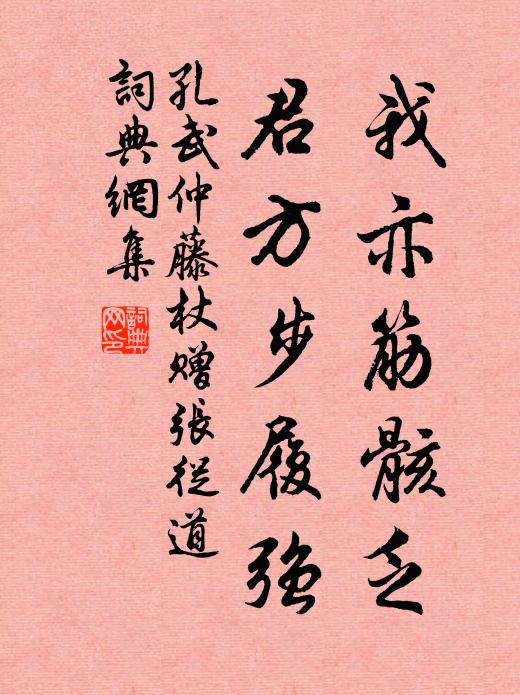 我亦筋骸乏
君方步履强
孔武仲藤杖赠張従道
詞典網集
詞典网印